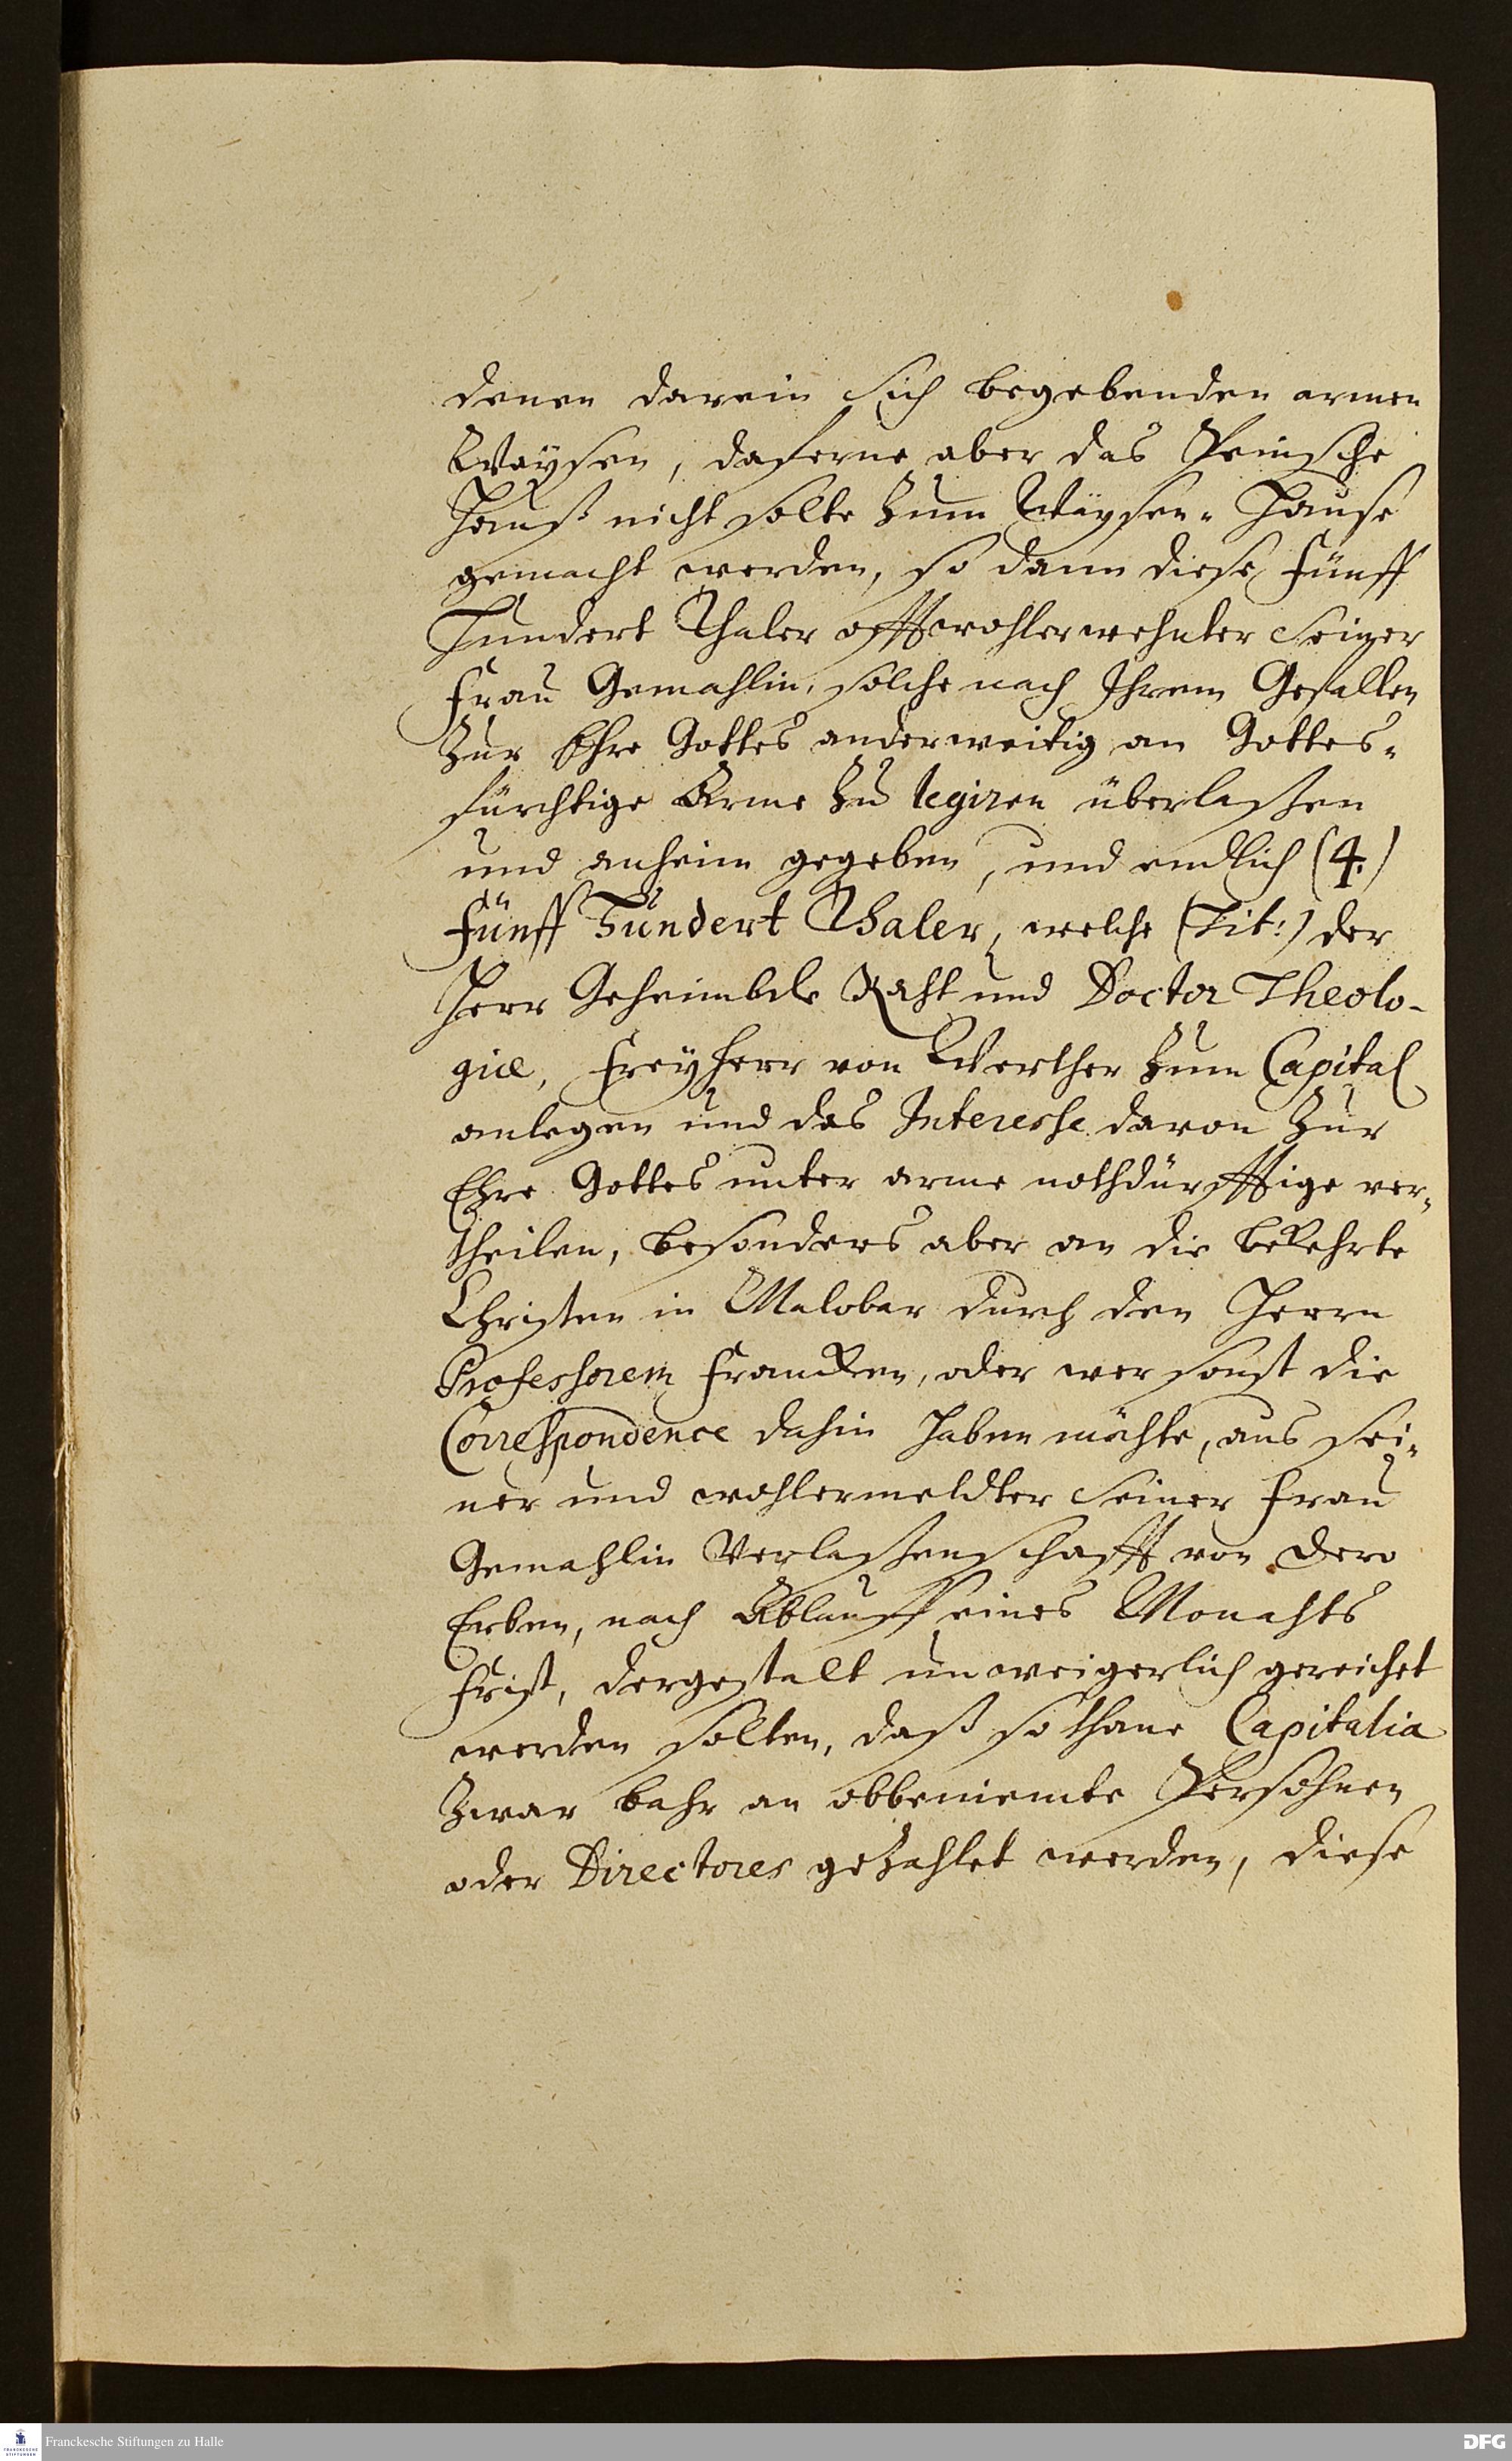 denen darein sich begebenden armen
Waysen, daferne aber das Peinsche
Hauß nicht solte zum Waysen-Hause
gemacht werden, so dann diese fünff
Hundert Thaler offtwohlerwehnter seiner
Frau Gemahlin, solche nach Ihrem Gefallen
zur Ehre Gottes anderweitig an Gottes-
fürchtige Arme zu legiren überlaßen
und anheim gegeben, und endlich (4.)
Fünff Hundert Thaler, welche (Tit:) der
Herr Geheimbde Raht und Doctor Theolo-
giæ, Freyherr von Werther zum Capital
anlegen und das Interesse davon zur
Ehre Gottes unter arme nothdürfftige ver-
theilen, besonders aber an die bekehrte
Christen in Malabar durch den Herrn
Professorem Francken, oder wer sonst die
Correspondence dahin haben möchte, aus sei-
ner und wohlermeldter seiner Frau
Gemahlin Verlaßenschafft von dero
Erben, nach Ablauff eines Monahts
Frist, dergestalt unweigerlich gereichet
werden solten, daß sothane Capitalia
zwar bahr an obbeniemte Persohnen
oder Directores gezahlet werden, diese
Franckesche Stiftungen zu Halle
DFG